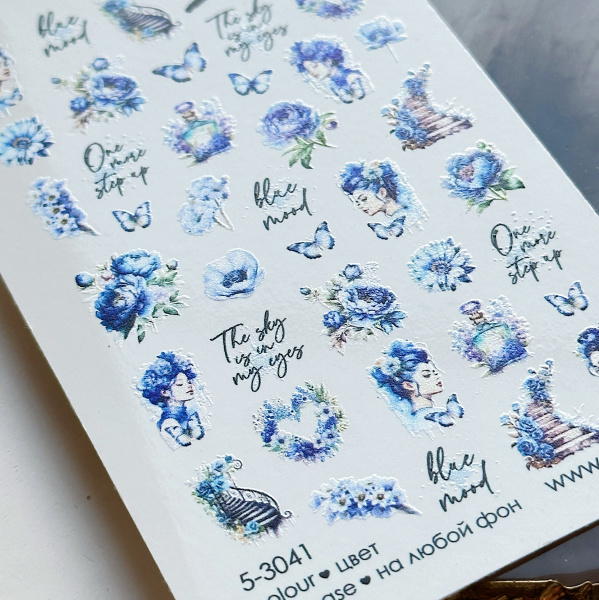 blue
mood
The sky
is in
my eyes
One
more
step up
blue
mood
One
more
step up
The sky
is in
my eyes
blue
mood
5-3041
olour ♥ цвет
ase ♥ на любой фон
www.